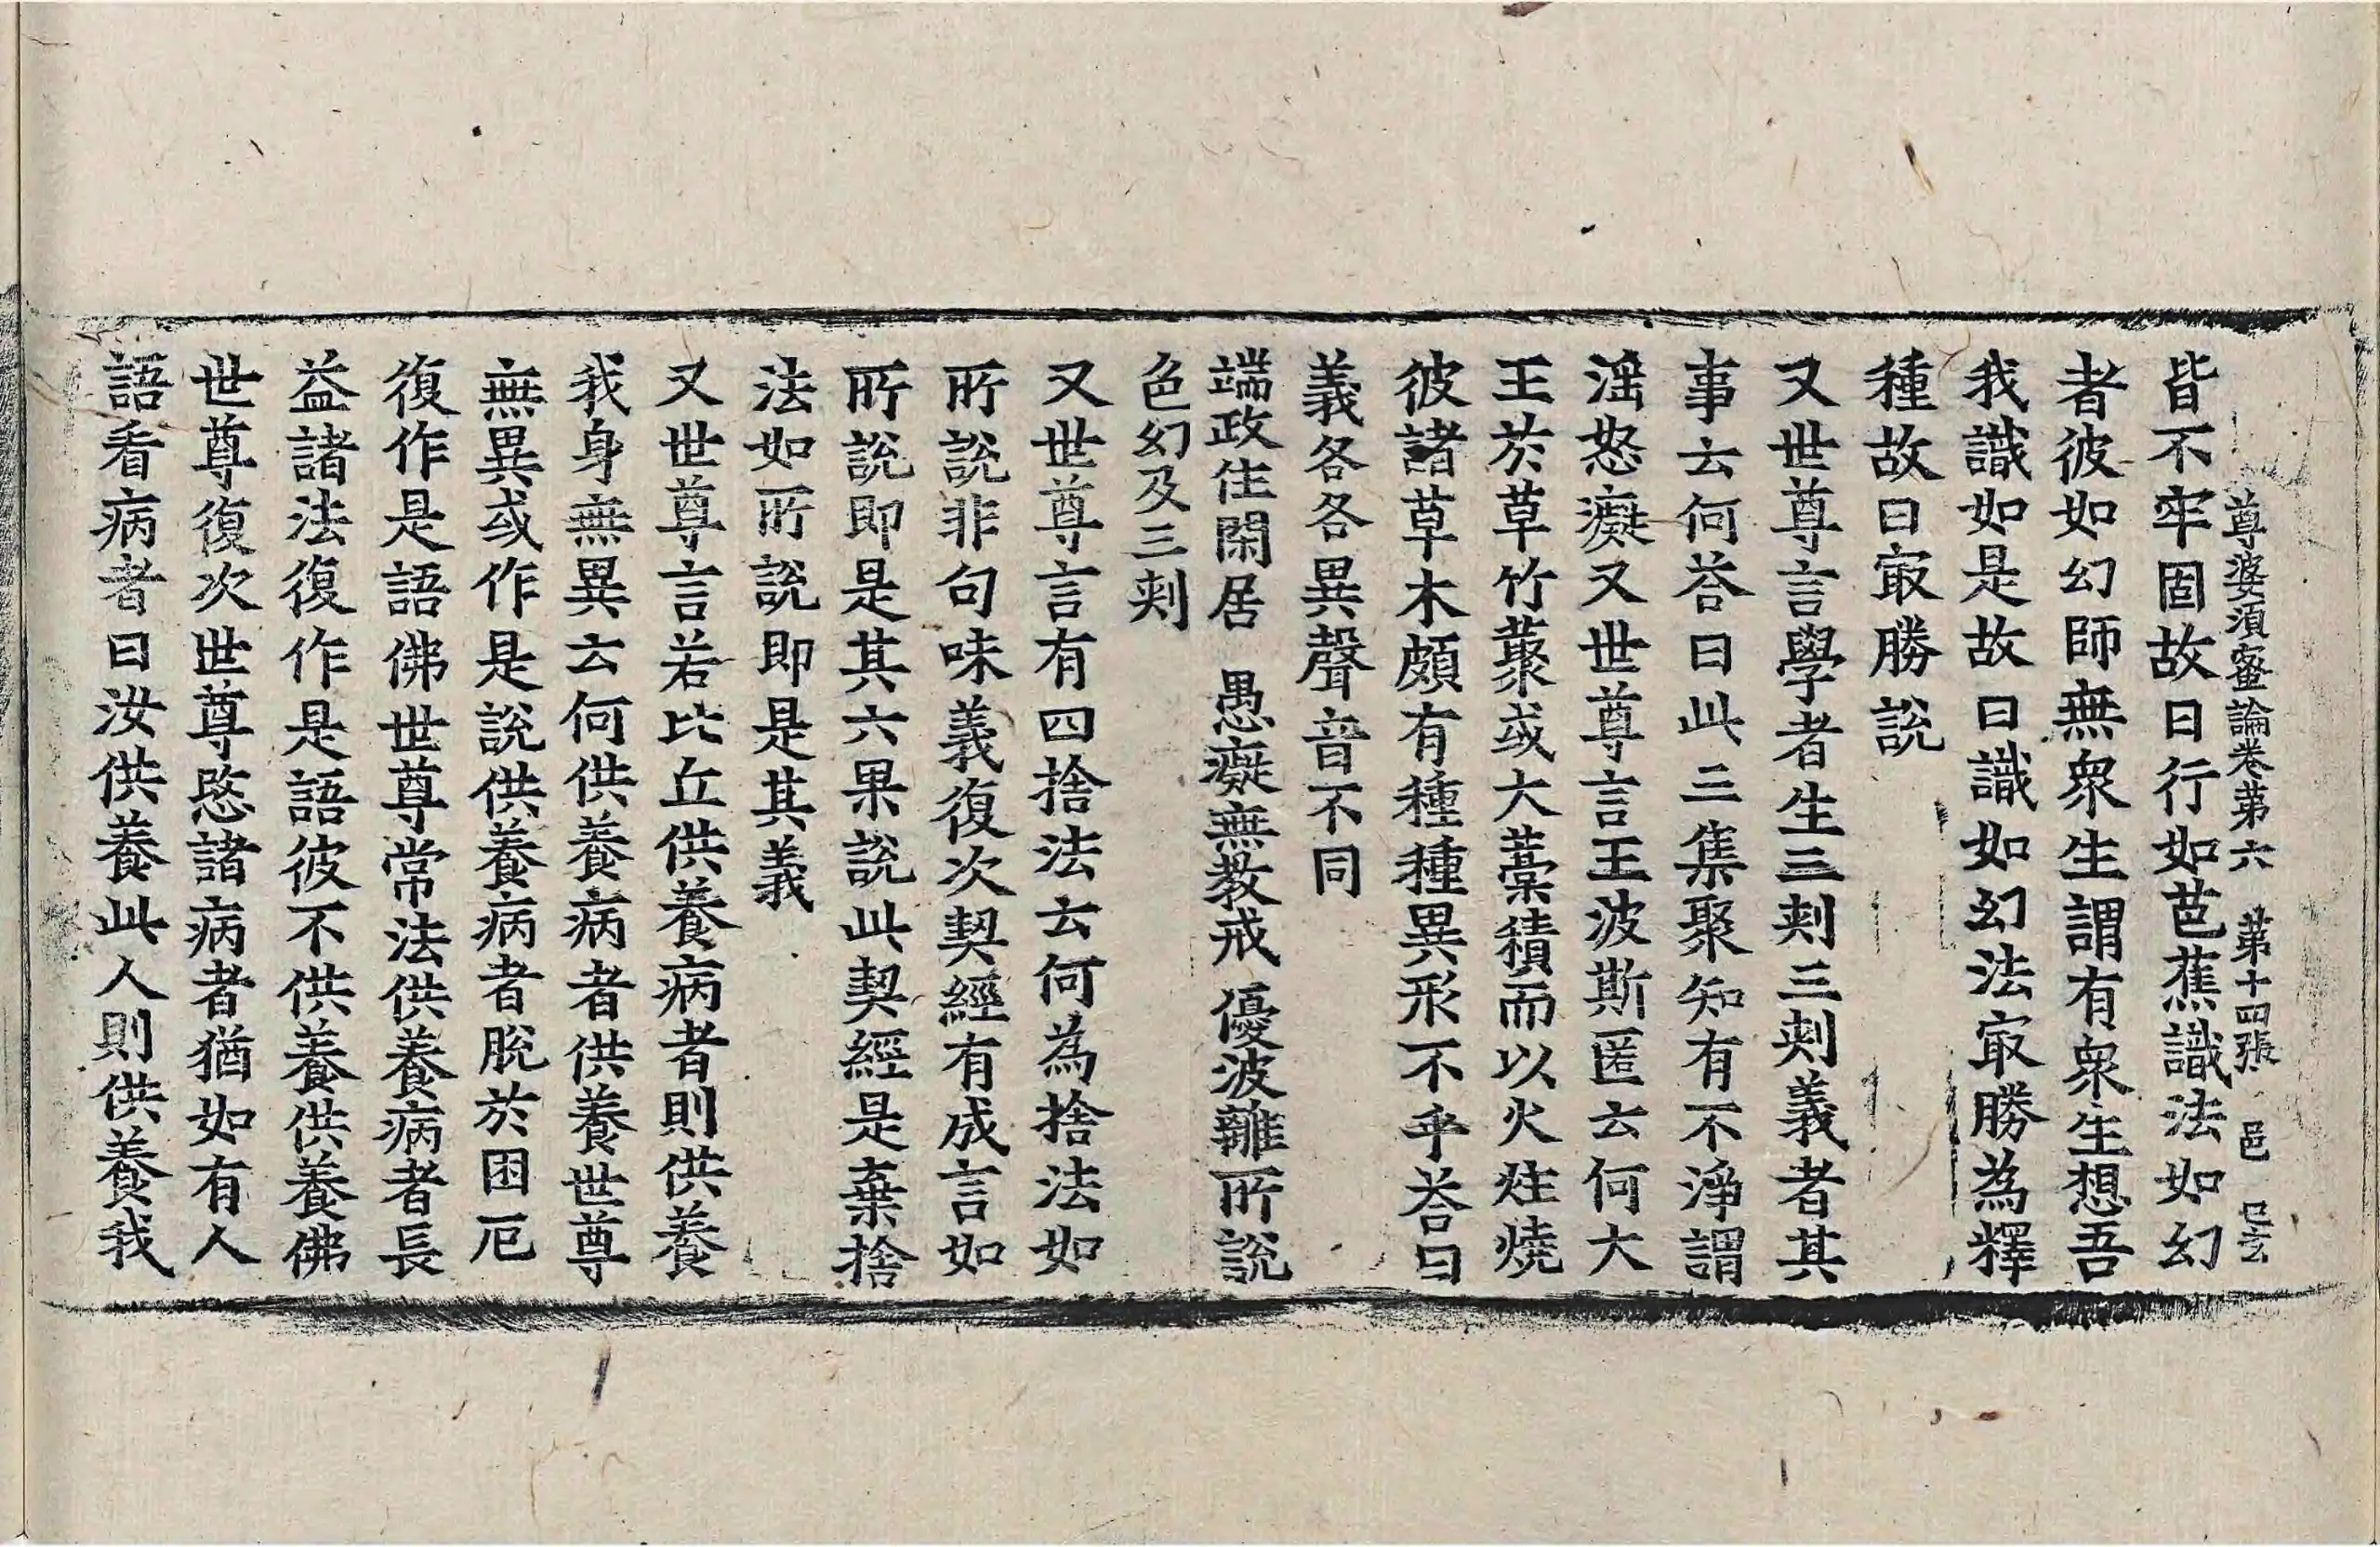 尊婆須蜜論卷第六 第十四張 邑
皆不牢固故曰行如芭蕉識法如幻
者彼如幻師無衆生謂有衆生想吾
我識如是故曰識如幻法㝡勝為釋
種故曰㝡勝說
又世尊言學者生三剌三剌義者其
事云何荅曰此三集聚知有不淨謂
婬怒癡又世尊言王波斯匿云何大
王於草竹藂或大藁積而以火炷燒
彼諸草木頗有種種異形不乎荅曰
義各各異聲音不同
端政住閑居 愚癡無教戒 優波離所說
色幻及三剌
又世尊言有四捨法云何為捨法如
所說非句味義復次契經有成言如
所說即是其六果說此契經是棄捨
法如所說即是其義
又世尊言若比丘供養病者則供養
我身無異云何供養病者供養世尊
無異或作是說供養病者脫於困厄
復作是語佛世尊常法供養病者長
益諸法復作是語彼不供養供養佛
世尊復次世尊愍諸病者猶如有人
語看病者曰汝供養此人則供養我